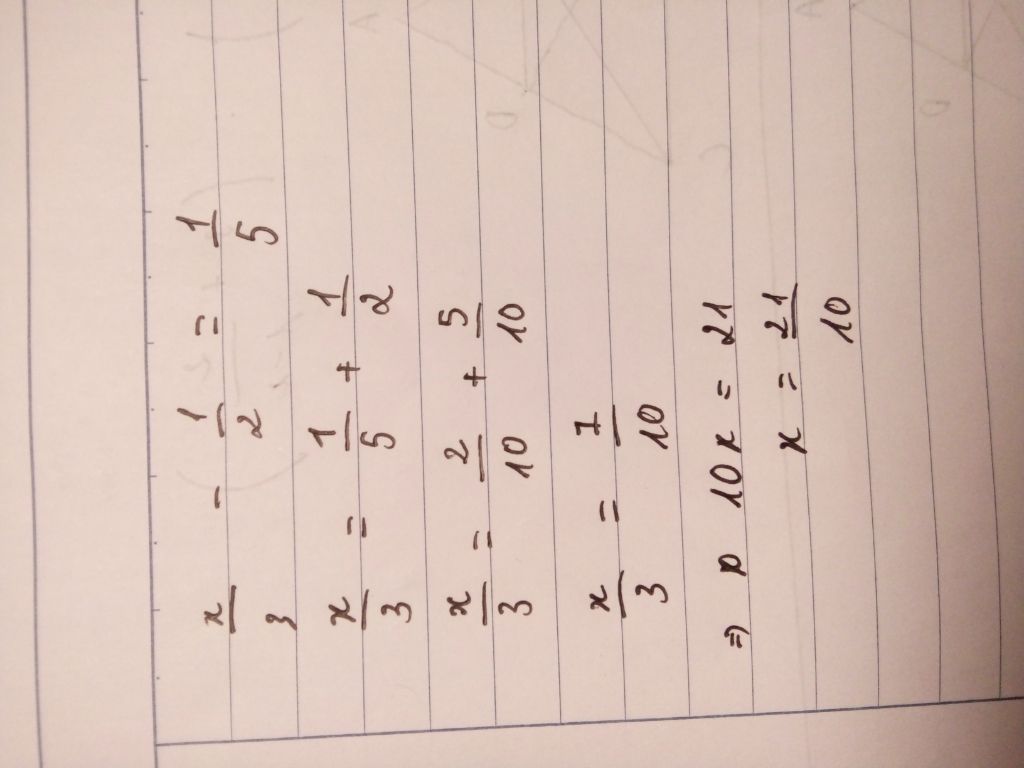 x/3 - 1/2 = 1/5
x/3 = 1/5 + 1/2
x/3 = 2/10 + 5/10
x/3 = 7/10
=> 10x = 21
x = 21/10